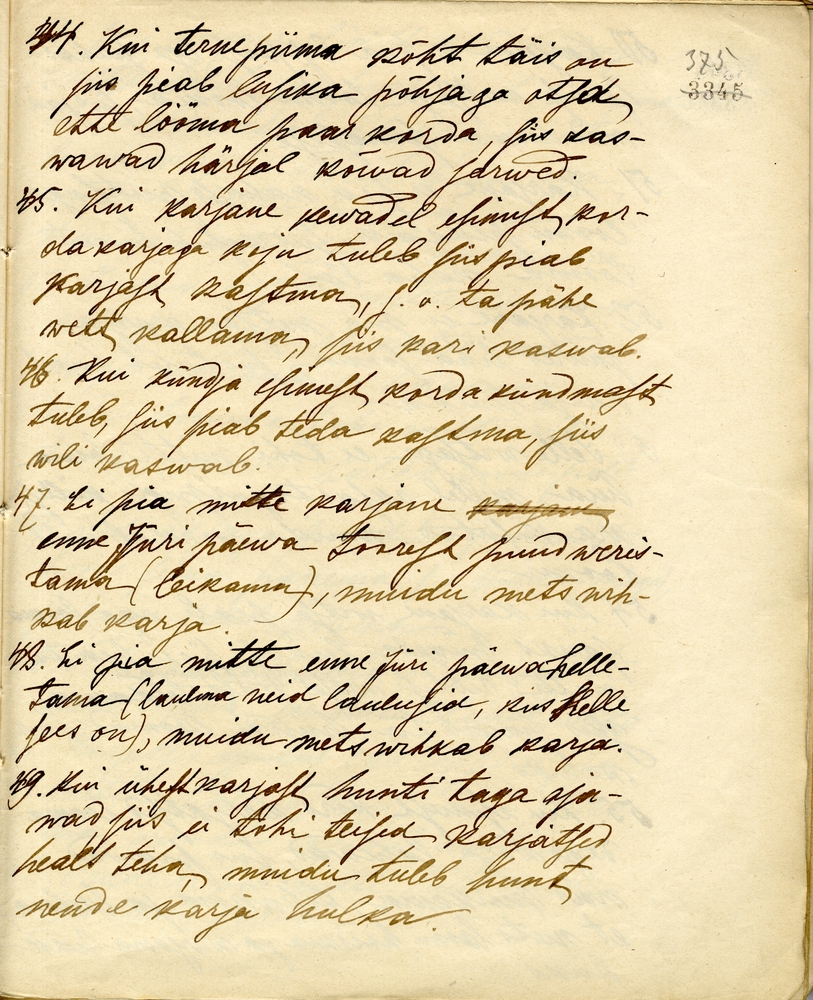 44. Kui ternepiima kõht täis on
siis peab lusika põhjaga otsa
ette lööma paar korda, siis kas-
wawad härjal kõwad sarwed.
45. Kui karjane kewadel esimest kor-
da karjaga koju tuleb siis peab
karjast kastma, s. o. ta pähe
wett kallama, siis kari kaswab.
46. Kui kündja esimest korda kündmast
tuleb, siis piab teda kastma, siis
wili kaswab.
47. Ei pia mitte karjane karjane
enne Jüri päewa toorest puud weris-
tama (leikama), muidu mets wih-
kab karja.
48. Ei pia mitte enne Jüri päewa helle-
tama (laulma neid laulusid, kus helle
sees on), muidu mets wihkab karja.
49. Kui ühest karjast hunti taga aja-
wad, siis ei tohi teised karjatsed
healt teha, muidu tuleb hunt
nende karja hulka.
375
3345